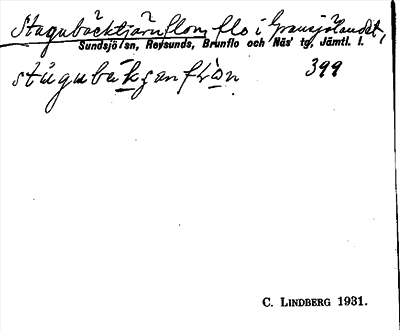 Stugubäcktjärnflon, flo i Gransjölandet,
Sundsjö sn, Revsunds, Brunflo och Näs' tg, Jämtl. l.
399
C. LINDBERG 1931.